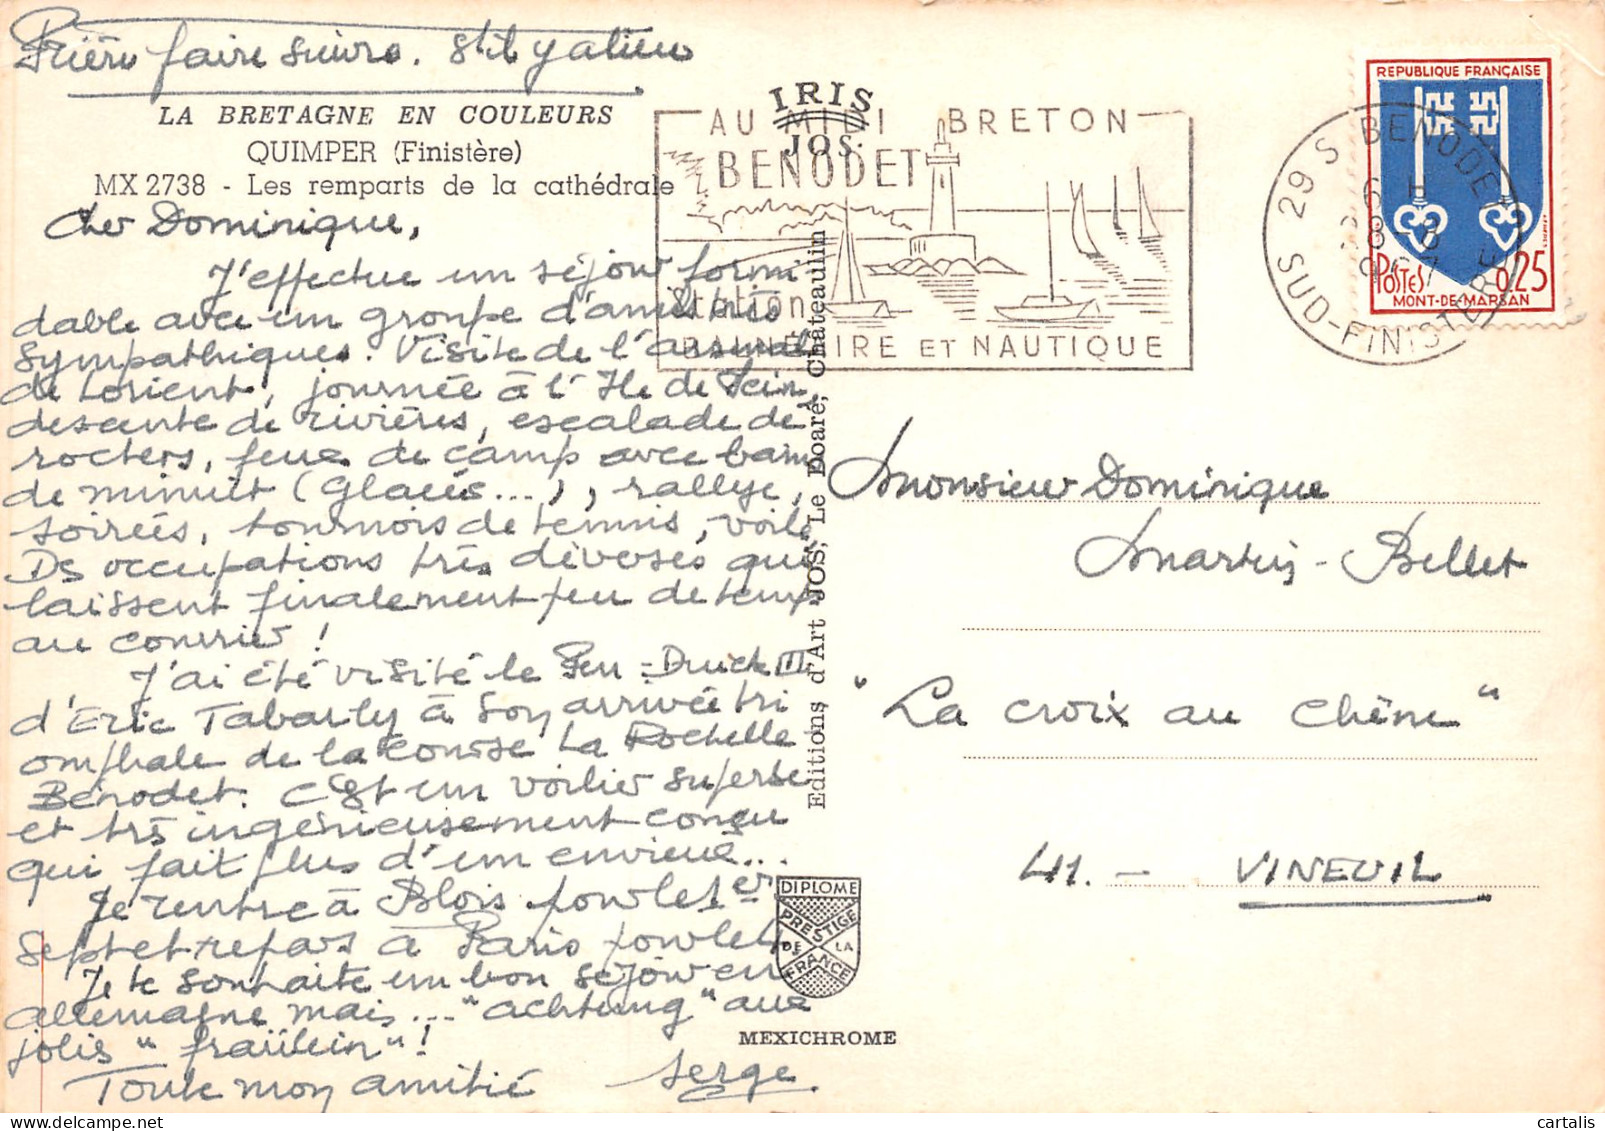 Prière faire suivre. S'il y a lieu
LA BRETAGNE EN COULEURS
QUIMPER (Finistère)
MX 2738 - Les remparts de la cathédrale
Cher Dominique,
J'effectue un séjour formi
dable avec un groupe d'amis très
sympathiques. Visite de l'arsenal
de Lorient, journée à l'Ile de Sein,
descente de rivières, escalade de
rochers, feux de camp avec bain
de minuit (glacés...), rallye,
soirées, tournois de tennis, voile
Ds occupations très diverses qui
laissent finalement peu de temps
au courrier !
J'ai été visité le Pen-Duick III
d'Eric Tabarly à son arrivée tri
omphale de la course La Rochelle
Bénodet. C'est un voilier superbe
et très ingénieusement conçu
qui fait plus d'un envieux...
Je rentre à Blois pour le 1er
Sept et repars à Paris pour le 4
Je te souhaite un bon séjour en
allemagne mais... "achtung" aux
jolis "fraülein"!
Toute mon amitié
Serge
IRIS
JOS.
Editions d'Art JOS, Le Doaré, Châteaulin
DIPLOME
PRESTIGE
DE LA
FRANCE
MEXICHROME
AU MIDI BRETON
BENODET
Station
BALNÉAIRE ET NAUTIQUE
29 S BENODET
6 H
28-8
1967
SUD-FINISTERE
REPUBLIQUE FRANÇAISE
POSTES 0,25
MONT-DE-MARSAN
Monsieur Dominique
Martin-Bellet
"La croix au Chêne"
41. - VINEUIL
cartalis